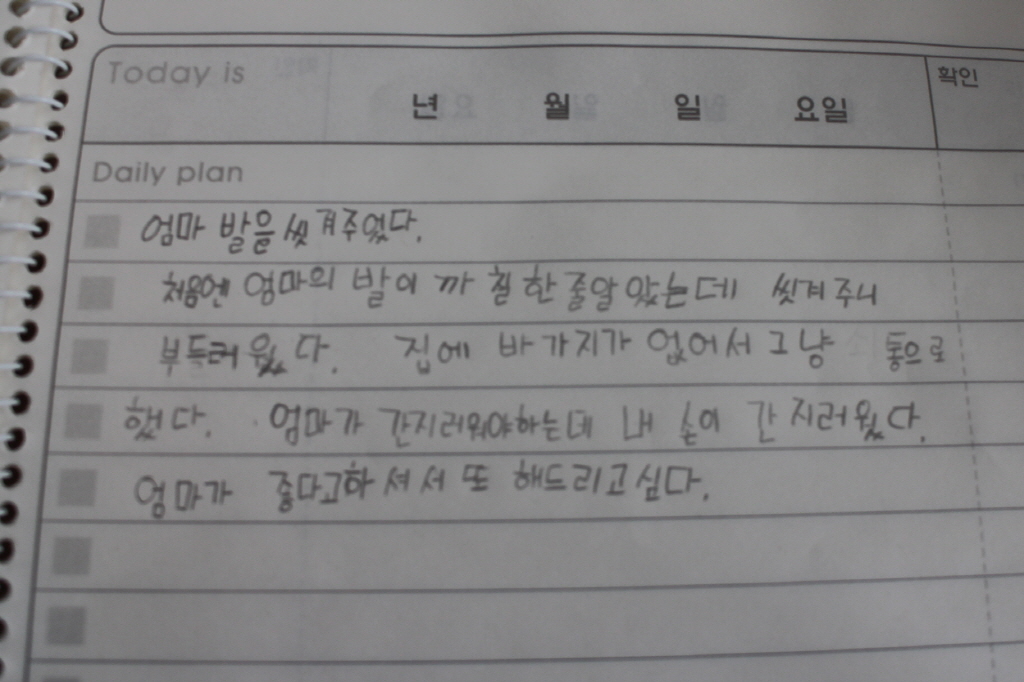 Today is
년 월 일 요일
확인
Daily plan
엄마 발을 씻겨주었다.
처음엔 엄마의 발이 까칠한줄알았는데 씻겨주니
부드러웠다. 집에 바가지가 없어서 그냥 통으로
했다. 엄마가 간지러워야하는데 내 손이 간지러웠다.
엄마가 좋다고하셔서 또 해드리고싶다.